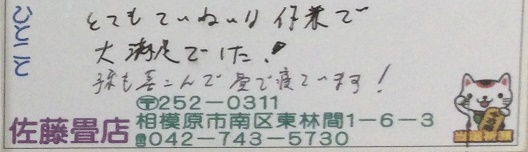 ひとこと
とてもていねいな作業で
大満足でした!
孫も喜こんで畳で寝ています!
佐藤畳店
〒252-0311
相模原市南区東林間1-6-3
☎042-743-5730
当選祈願